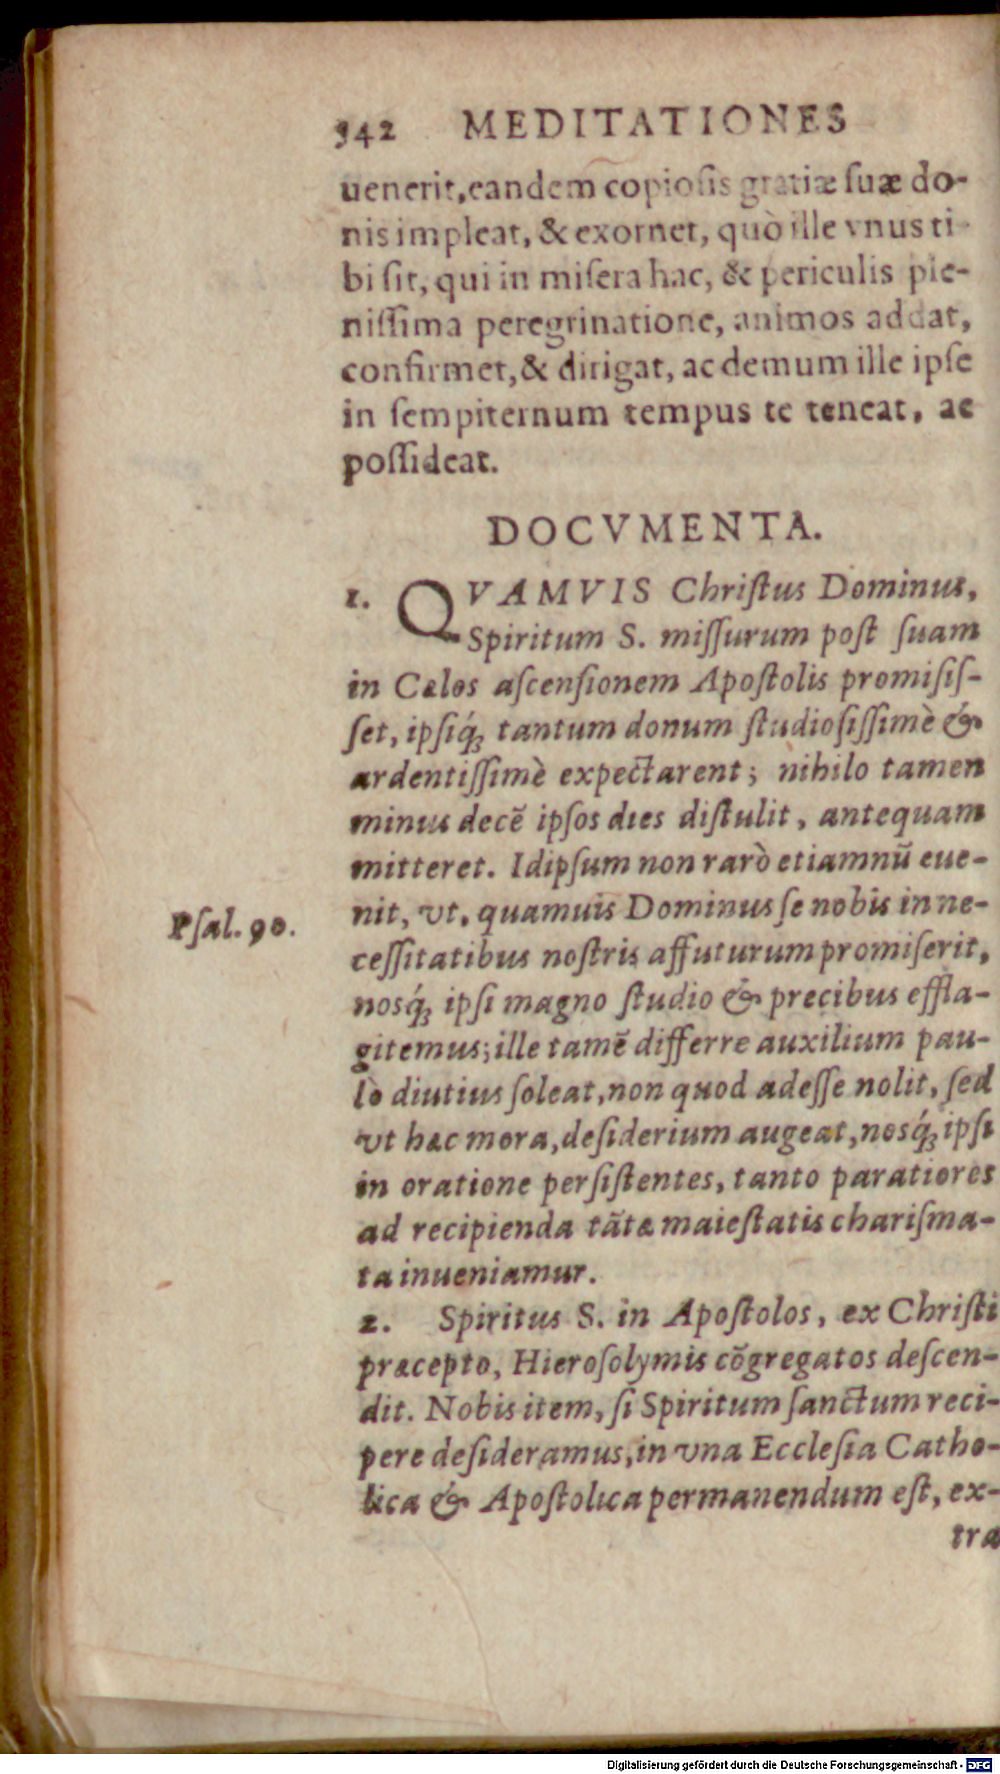 342 MEDITATIONES
uenerit, eandem copiosis gratiæ suæ do-
nis impleat, & exornet, quò ille vnus ti-
bi sit, qui in misera hac, & periculis ple-
nissima peregrinatione, animos addat,
confirmet, & dirigat, ac demum ille ipse
in sempiternum tempus te teneat, ac
possideat.
DOCVMENTA.
1. QVAMVIS Christus Dominus,
Spiritum S. missurum post suam
in Cælos ascensionem Apostolis promisis-
set, ipsiq́; tantum donum studiosissimè &
ardentissimè expectarent; nihilo tamen
minus decẽ ipsos dies distulit, antequam
mitteret. Idipsum non rarò etiamnũ eue-
nit, vt, quamuis Dominus se nobis in ne-
Psal. 90.
cessitatibus nostris affuturum promiserit,
nosq́; ipsi magno studio & precibus effla-
gitemus; ille tamẽ differre auxilium pau-
lò diutius soleat, non quod adesse nolit, sed
vt hæc mora, desiderium augeat, nosq́; ipsi
in oratione persistentes, tanto paratiores
ad recipienda tãtæ maiestatis charisma-
ta inueniamur.
2. Spiritus S. in Apostolos, ex Christi
præcepto, Hierosolymis cõgregatos descen-
dit. Nobis item, si Spiritum sanctum reci-
pere desideramus, in vna Ecclesia Catho-
lica & Apostolica permanendum est, ex-
tra
Digitalisierung gefördert durch die Deutsche Forschungsgemeinschaft - DFG